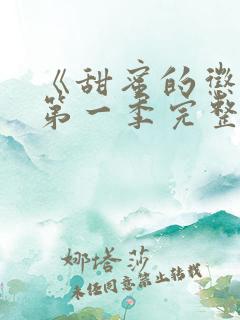 《甜蜜的惩
第一季完整
娜塔莎
未经同意禁止转载